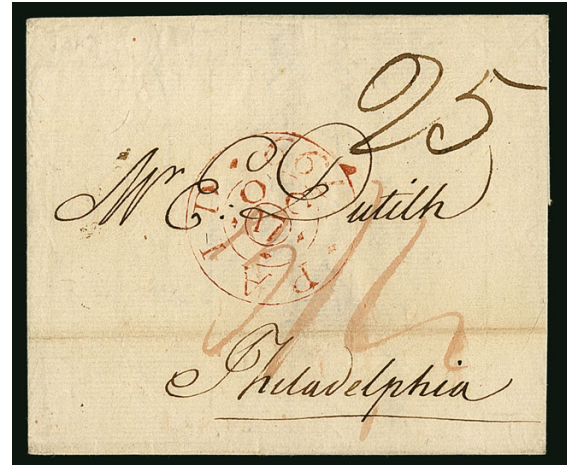 25
Mr. E: Dutilh
PAID
Philadelphia